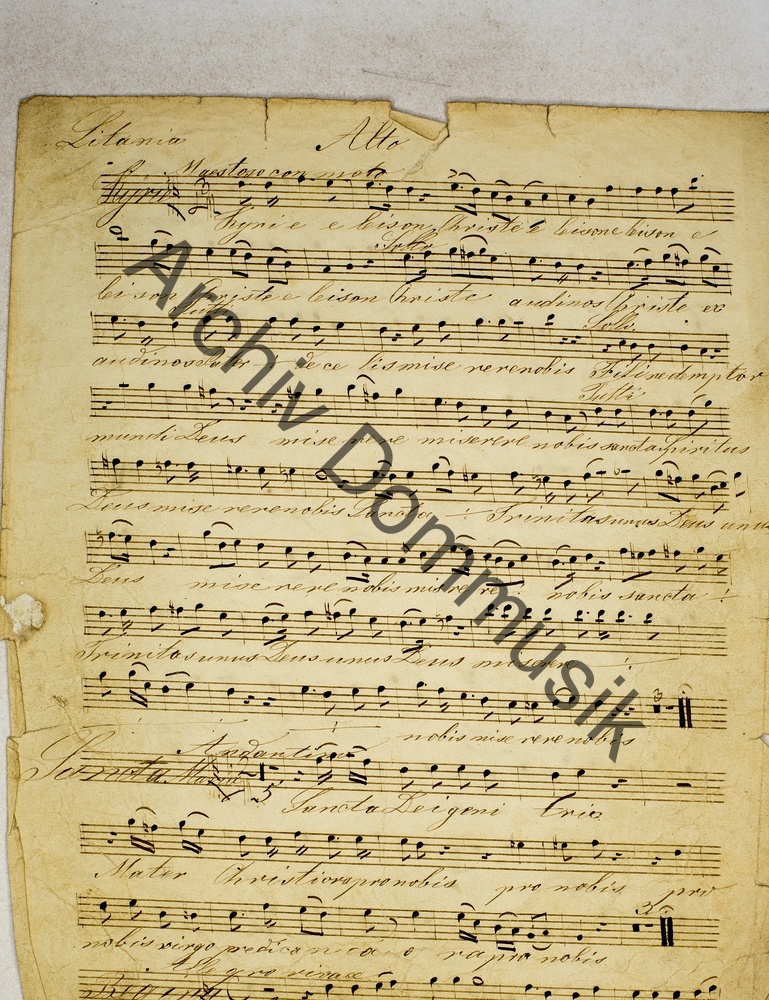 Litania Alto
Maestoso con moto
Kyrie
Kyrie e leison Christe e leison e leison e
Solo
leison Christe e leison Christe audinos Christe ex
Tutti Solo
audinos Pater de ce lis mise rerenobis Fili redemptor
Tutti
mundi Deus mise rere miserere nobis sancta Spiritus
Deus mise rerenobis Sancta Trinitas unus Deus unus
Deus mise rere nobis misere re nobis sancta
Trinitas unus Deus unus Deus misere
3
nobis mise rere nobis
Andantino
Sancta Maria
5
Sancta Dei geni trix
Mater Christi ora pro nobis pro nobis pro
3
nobis virgo predican da o ra pro nobis
Allegro vivace
Archiv Dommusik